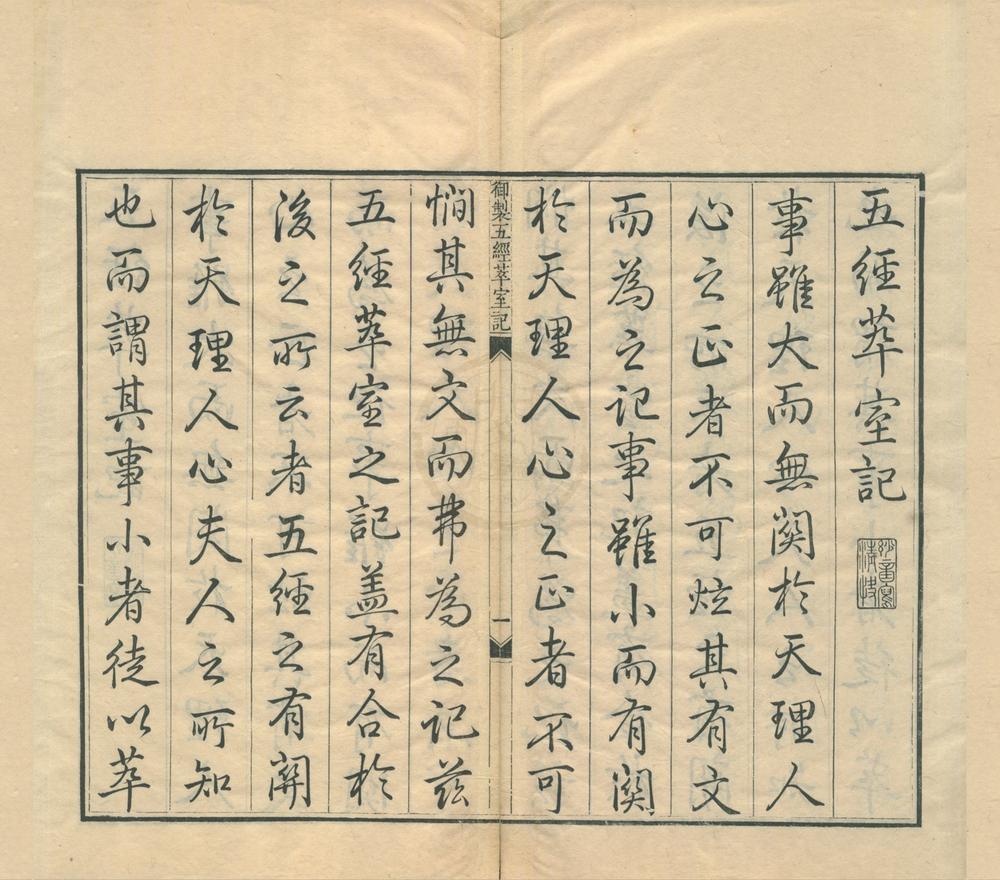 五經萃室記
事雖大而無關於天理人
心之正者不可炫其有文
而為之記事雖小而有關
於天理人心之正者不可
御製五經萃室記
一
憪其無文而弗為之記茲
五經萃室之記蓋有合於
後之所云者五經之有關
於天理人心夫人之所知
也而謂其事小者徒以萃